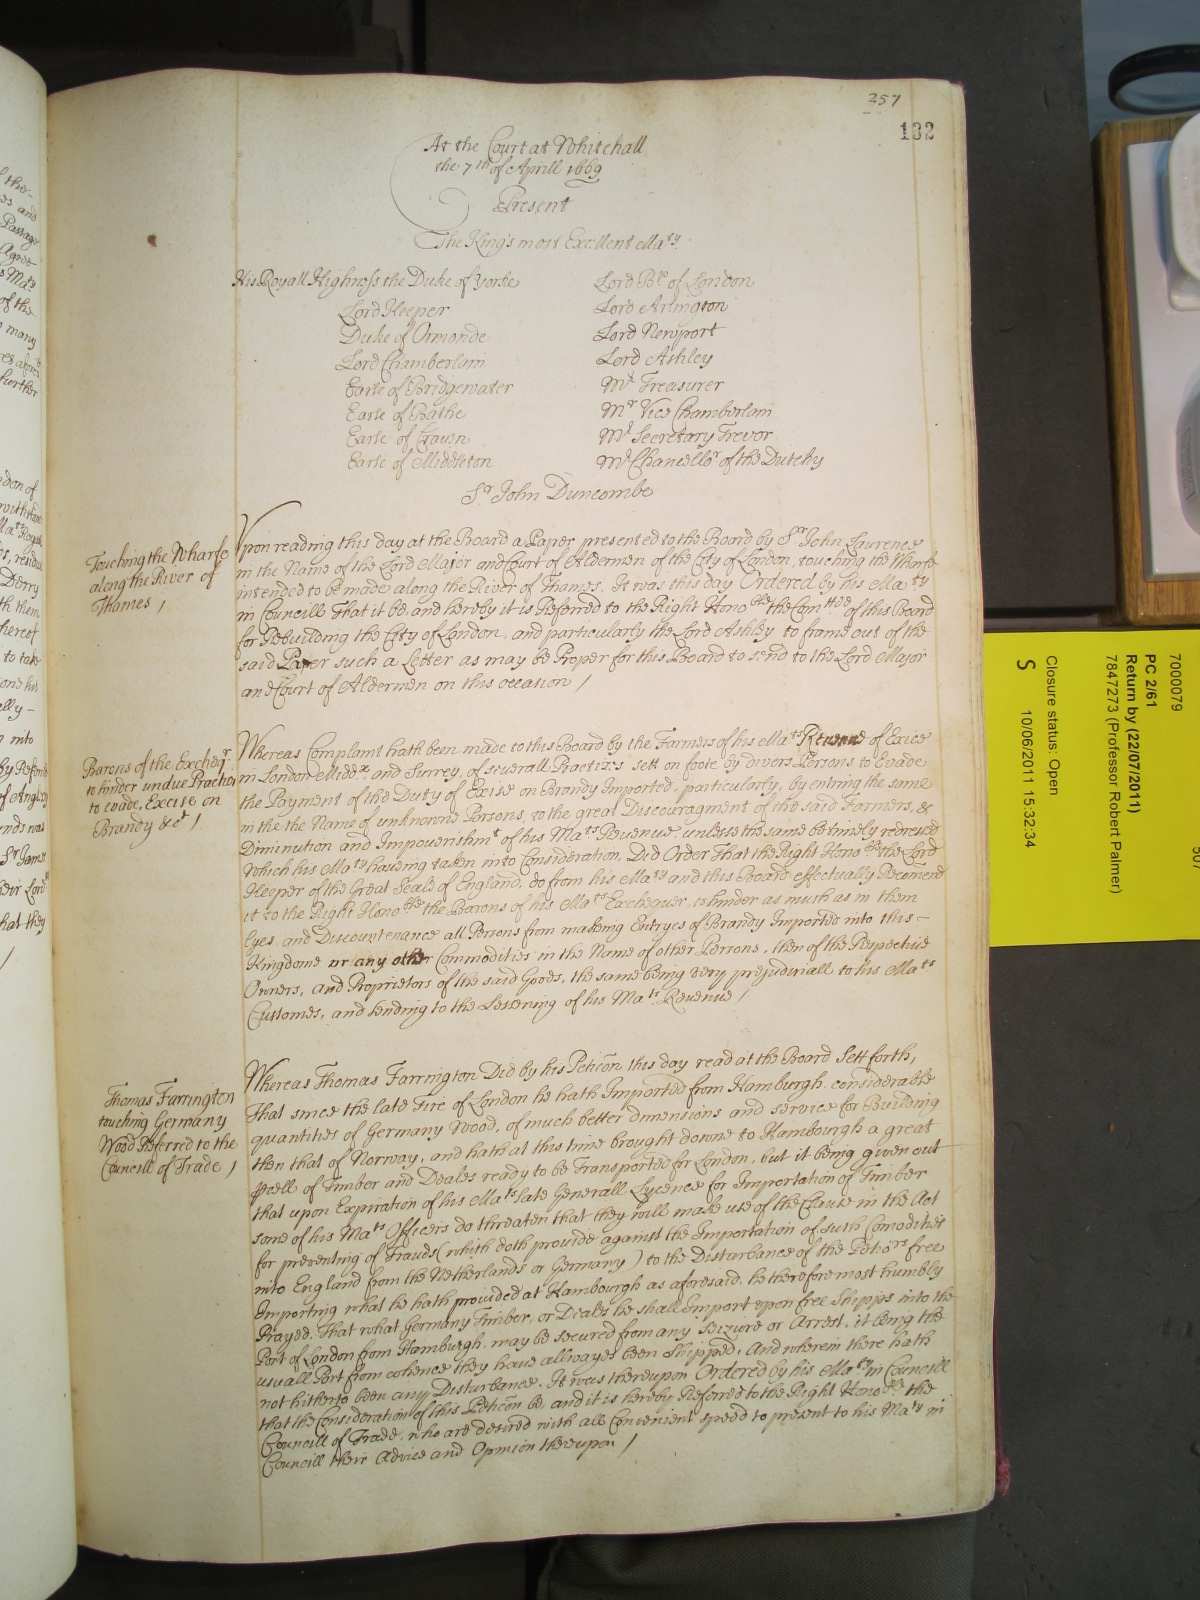 257
132
At the Court at Whitehall
the 7th of Aprill 1669
Present
The King's most Excellent Maty
His Royall Highness the Duke of Yorke
Lord Keeper
Duke of Ormonde
Lord Chamberlain
Earle of Bridgewater
Earle of Bathe
Earle of Craven
Earle of Middleton
Lord Bp of London
Lord Arlington
Lord Newport
Lord Ashley
Mr Treasurer
Mr Vice Chamberlain
Mr Secretary Trevor
Mr Chancellor of the Dutchy
Sr John Duncombe
Touching the Wharfe
along the River of
Thames /
Upon reading this day at the Board a Paper presented to the Board by Sr John Laurence
in the Name of the Lord Major and Court of Aldermen of the City of London, touching the Wharfe
intended to be made along the River of Thames, It was this day Ordered by his Maty
in Councill That it be, and hereby it is Referred to the Right Honoble the Comttee of this Board
for Rebuilding the City of London, and particularly the Lord Ashley to frame out of the
said Paper such a Letter as may be Proper for this Board to send to the Lord Mayor
and Court of Aldermen on this occasion /
Barons of the Excheqr
to hinder undue Practices
to evade, Excise on
Brandy &ct /
Whereas Complaint hath been made to this Board by the Farmers of his Mats Revenue of Exice
in London Middx and Surrey, of severall Practizes sett on foote by divers Persons to Evade
the Payment of the Duty of Excise on Brandy Imported, particularly, by entring the same
in the the Name of unknowne Persons, to the great Discouragment of the said Farmers, &
Diminution and Impoverishmt of his Mats Revenue, unlesse the same be timely redressed
Which his Maty haveing taken into Consideration, Did Order That the Right Honoble the Lord
Keeper of the Great Seale of England, do from his Maty and this Board effectually Recomend
it to the Right Honoble the Barons of his Mats Exchequer, to hinder as much as in them
lyes, and Discountenance all Persons from makeing Entryes of Brandy Imported into this -
Kingdome or any other Commodities in the Name of other Persons, then of the Respective
Owners, and Proprietors of the said Goods, the same being very prejudiciall to his Mats
Customes, and tending to the Lessening of his Mats Revenue /
Thomas Farrington
touching Germany
Wood Referred to the
Councill of Trade /
Whereas Thomas Farrington Did by his Peticon this day read at the Board Sett forth,
That since the late Fire of London he hath Imported from Hamburgh, considerable
quantities of Germany Wood, of much better dimensions and service for Building
then that of Norway, and hath at this time brought downe to Hambourgh a great
pcell of Timber and Deales ready to be Transported for London, but it being given out
that upon Expiration of his Mats late Generall Lycence for Importation of Timber
some of his Mats Officers do threaten that they will make use of the Clause in the Act
for preventing of Frauds (which doth provide against the Importation of such Comodities
into England from the Netherlands or Germany) to the Disturbance of the Petiors free
Importing what he hath provided at Hambourgh as aforesaid, he therefore most humbly
Prayed, That what Germany Timber, or Deales he shall Import upon free Shipps into the
Port of London from Hamburgh, may be secured from any Seizure or Arrest, it being the
usuall Port from whence they have allwayes been Shipped, And wherein there hath
not hitherto been any Disturbance. It was thereupon Ordered by his Maty in Councill
that the Consideration of this Peticon be, and it is hereby Referred to the Right Honoble the
Councill of Trade, who are desired with all Convenient speed to present to his Maty in
Councill their Advice and Opinion thereupon /
7000079
PC 2/61
Return by (22/07/2011)
7847273 (Professor Robert Palmer)
Closure status: Open
S 10/06/2011 15:32:34